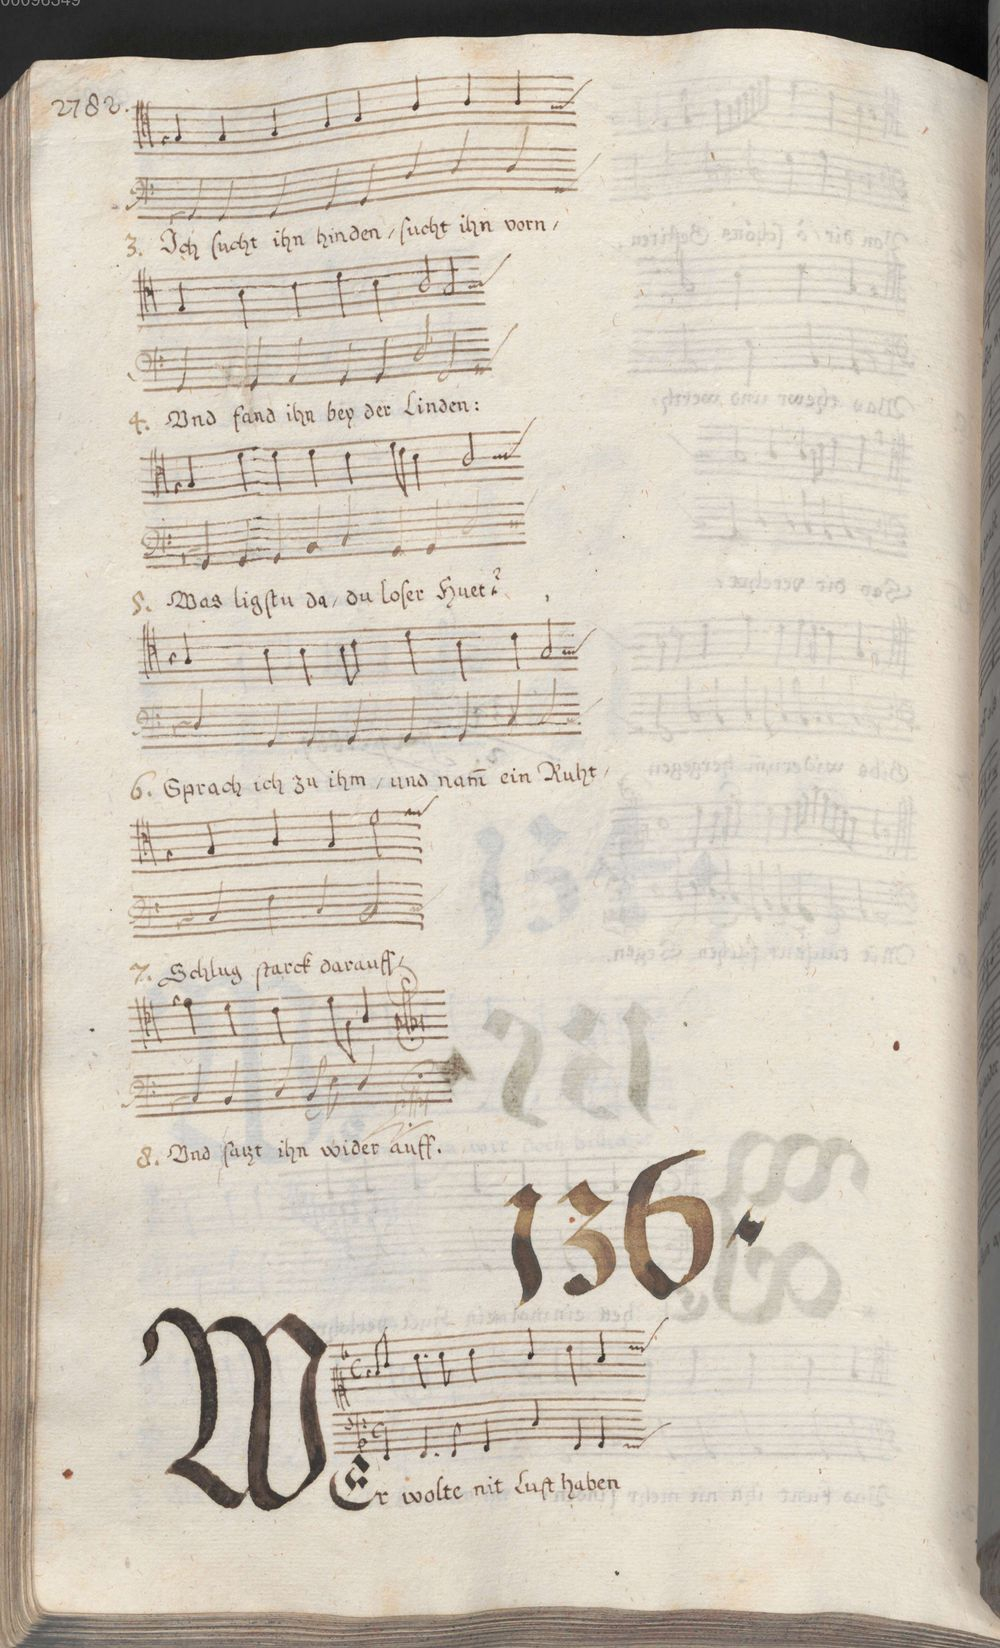 2782.
3. Ich sucht ihn hinden / sucht ihn vorn /
4. Vnd fand ihn bey der Linden:
5. Was ligstu da / du loser Huet?
6. Sprach ich zu ihm / und nam̄ ein Ruht /
7. Schlug starck darauff /
8. Vnd satzt ihn wider auff.
136.
WEr wolte nit Lust haben